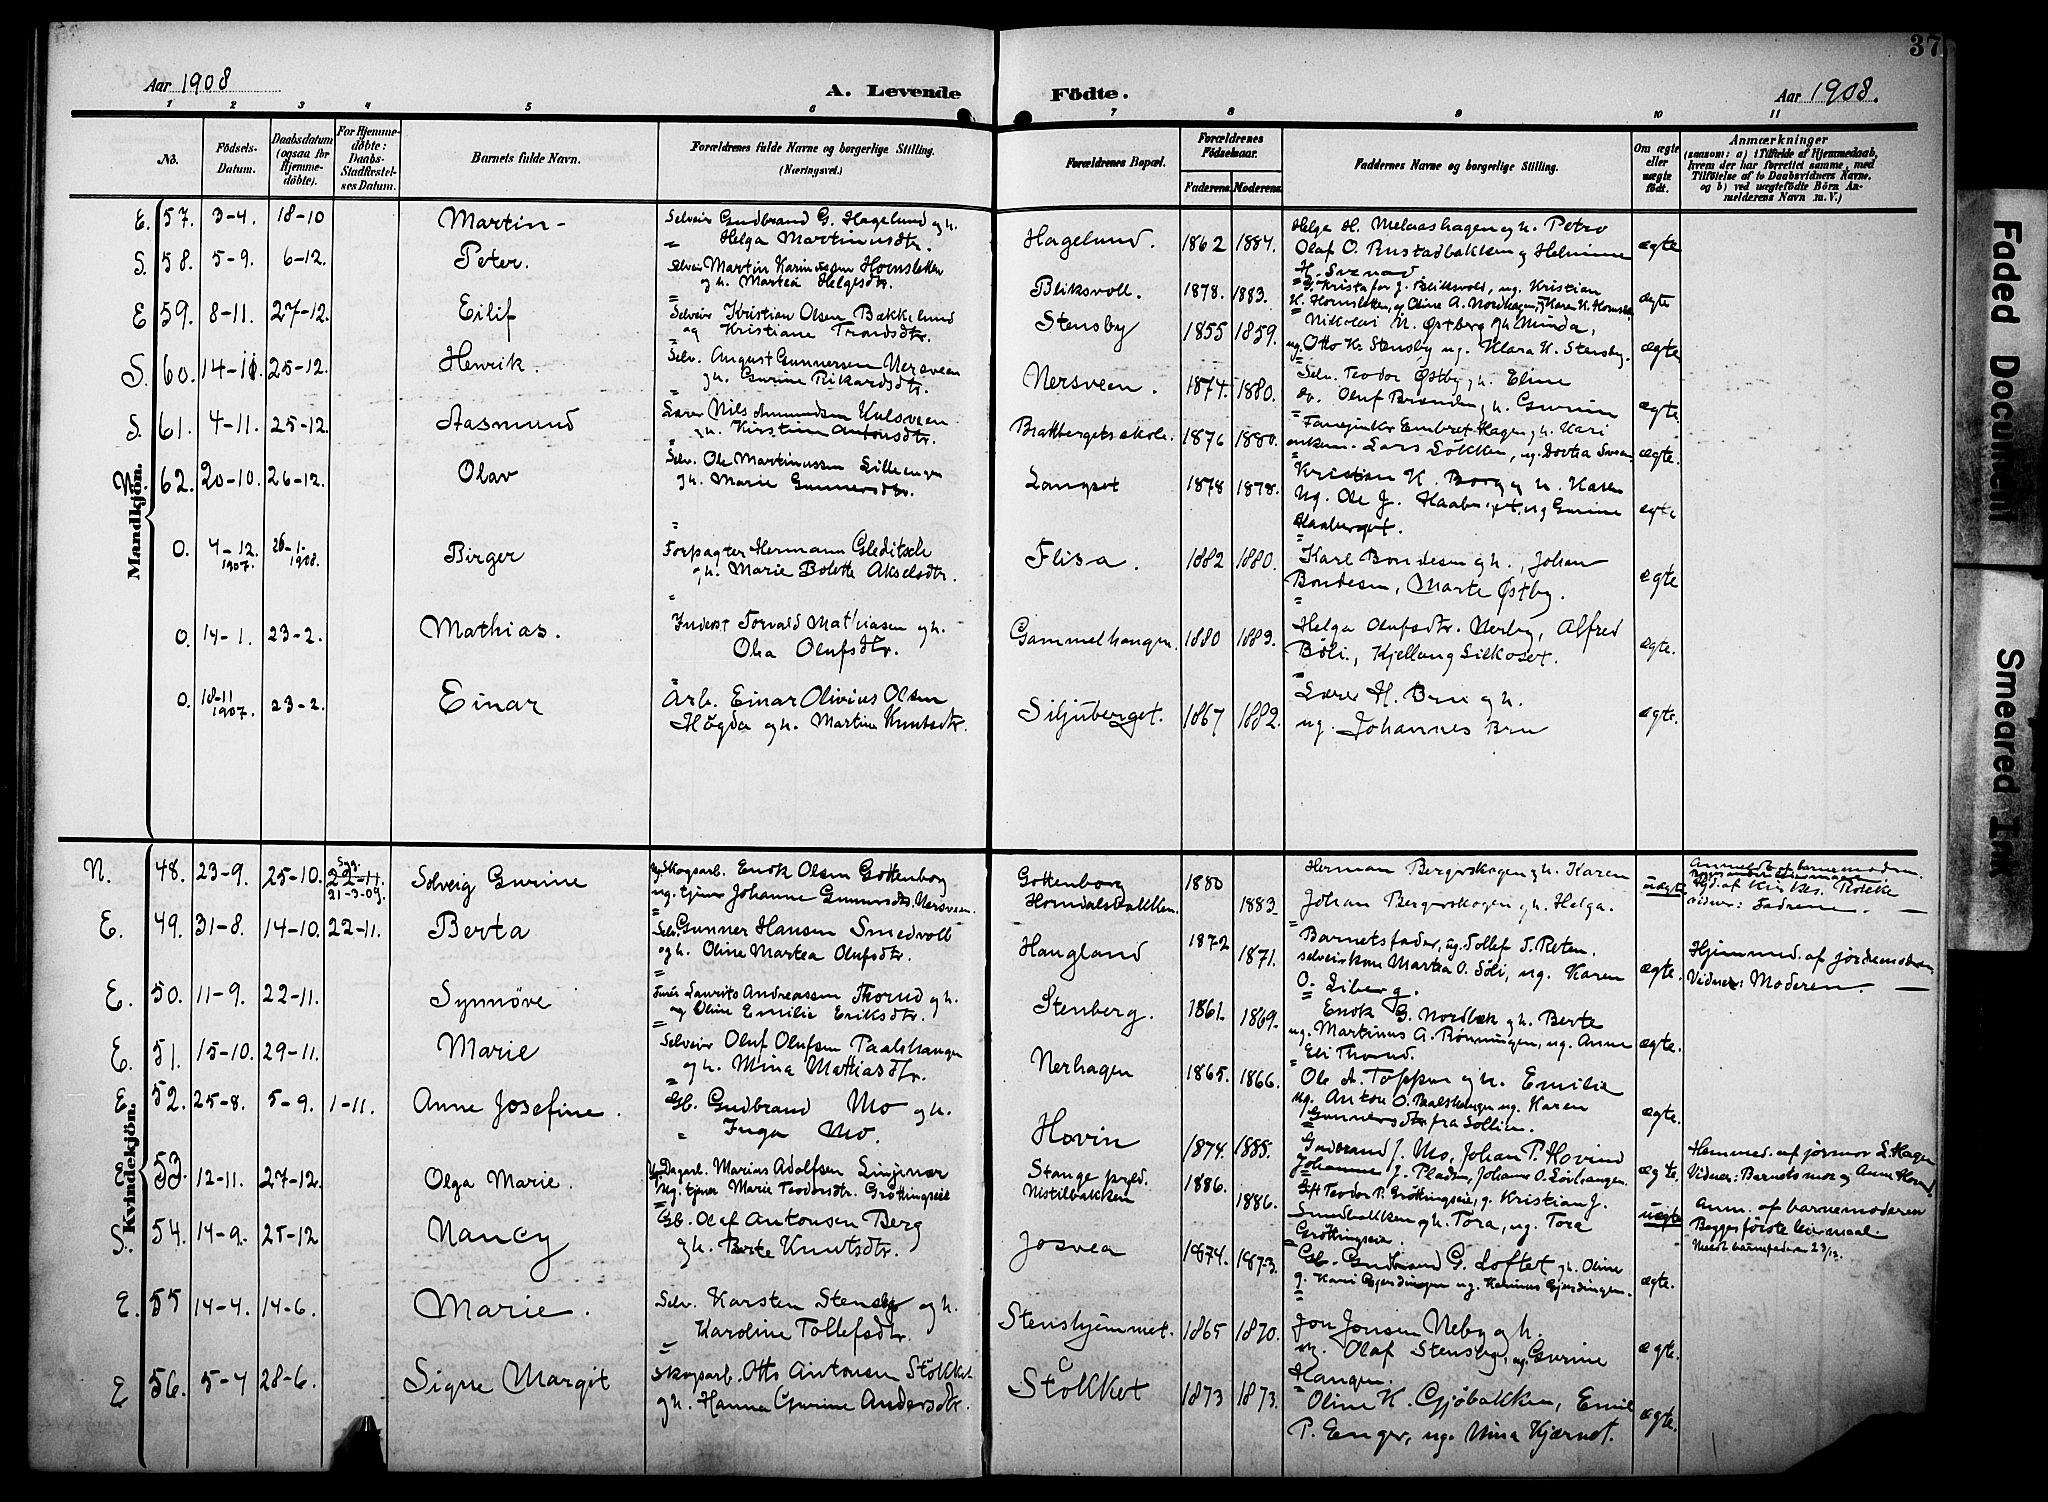 37
Aar 1908
A. Levende Födte.
Aar 1908.
1 2 3 4 5 6 7 8 9 10 11
No.
Födsels-
Datum.
Daabsdatum
(ogsaa for
Hjemme-
döbte).
For Hjemme-
döbte:
Daabs-
Stadfæstel-
ses Datum.
Barnets fulde Navn.
Forældrenes fulde Navne og borgerlige Stilling.
(Næringsvei.)
Forældrenes Bopæl.
Forældrenes
Födselsaar.
Faderens. Moderens.
Faddernes Navne og borgerlige Stilling.
Om ægte
eller
uægte
födt.
Anmærkninger
(saasom: a) i Tilfælde af Hjemmedaab,
hvem der har forrettet samme, med
Tilföielse af to Daabsvidners Navne,
og b) ved uægtefödte Börn An-
melderens Navn m. V.)
Mandkjön.
E. 57. 3-4. 18-10 Martin- Selveir Gudbrand G. Hagelund og h.
Helga Martinusdtr. Hagelund. 1862 1884. ægte
Helge H. Melaashagen og h. Petro
Olaf O. Rustadbakken og Helmine
S. 58. 5-9. 6-12. Peter. Selveir Martin Karinussen Hornsletten
og h. Martea Helgesdtr. Bliksvoll. 1878. 1883. ægte
Kristian
E 59. 8-11. 27-12. Eilif Selveir Kristian Olsen Bækkelund
og Kristiane Trondsdtr. Stensby 1855 1859. ægte
Nikolai N. Østberg og h. Minda,
ug. Otto K. Stensby ug. Klara K. Stensby.
S. 60. 14-11. 25-12. Henrik. Selv. August Gunnersen Nersveen
og h. Gurine Rikardsdtr. Nersveen. 1874. 1880. ægte.
Selv. Teodor Østby og h. Eline
Oluf Brænden og h. Gurine
S. 61. 4-11. 25-12. Aasmund Lærer Nils Amundsen Kulsveen
og h. Kirstine Antonsdtr. Brattbergets skole. 1876 1880. ægte.
Embret Hagen og h. Kari
Lars Løkken,
N. 62. 20-10. 26-12. Olav Selv. Ole Martinussen Lilleenger
og h. Marie Gunnersdtr. Langset 1878 1878. ægte
Kristian K. Borg og h. Karen
ug. Ole J. Haaberget, ug Gurine
Haaberget.
0. 4-12. 1907. 26-1. 1908. Birger Forpagter Hermann Gleditsch
og h. Marie Bolette Akselsdtr. Flisa. 1882 1880. ægte
Karl Bondesen og h., Johan
Bondesen, Marte Østby.
0. 14-1. 23-2. Mathias. Inderst Torvald Mathiasen og h.
Olea Olufsdtr. Gammelhaugen. 1880 1883. ægte.
Helga Olufsdtr. Nerby, Alfred
Bøli, Kjellaug Silkoset.
0. 18-11 1907. 23-2. Einar Arb. Einar Olivius Olsen
Høgda og h. Martine Knutsdtr. Siljuberget. 1867 1882. ægte.
Lærer H. Bru og h.
ug. Johannes Bru
Kvindekjön.
N. 48. 23-9. 25-10. 22-11. 21-3-09. Solveig Gurine Skogsarb. Enok Olsen Gottenborg
ug. tjener Johanne Gunnersdtr. Nersveen. Gottenborg
Horndalsbakken. 1880 1883 uægte
Herman Bergerskogen og h. Karen
Johan Bergerskogen og h. Helga.
Anmeldt af barnemoderen.
E. 49. 31-8. 14-10. 22-11. Berta Selv. Gunner Hansen Smedvoll
og h. Oline Martea Olufsdtr. Haugland 1872 1871. ægte.
Barnets fader, ug. Tollef T. Reten.
selveierkone Martea O. Søli, ug. Karen
O. Liberg.
Hjemmed. af jordemoderen
Vidner: Moderen.
E. 50. 11-9. 22-11. Synnöve Laurits Andreassen Thorud og h.
Oline Emilie Eriksdtr. Stenberg. 1861. 1869. ægte.
Enok G. Nordbæk og h. Berte
ug. Martinus A. Rønningen, ug. Anne
Eli Thorud.
E. 51. 15-10. 29-11. Marie Selveir Oluf Olufsen Paalshaugen
og h. Mina Mathiasdtr. Nerhagen 1865. 1866. ægte.
Ole A. Toppen og h. Emilie
ug. Anton O. Paalshaugen ug. Karen
Gunnersdtr. fra Sollien.
E. 52. 25-8. 5-9. 1-11. Anne Josefine. Gb. Gudbrand Mo og h.
Inga Mo. Hovin 1874. 1885. ægte.
Gudbrand J. Mo, Johan P. Hovind
Johanne J. Pladsen, Johanne O. Løvhaugen.
Hemmed. af jormor L. Hagen
Vidner: Barnets mor og Anne Hovind.
E 53. 12-11. 27-12. Olga Marie. Dagarb. Marius Adolfsen Linjivær
ug. tjener Marie Teodorsdtr. Gröttingseie Stange præd.
Nistilbakken 1886. 1886. uægte
Teodor P. Gröttingseie, g. Kristian J.
Smedbakken og h. Tora, ug. Tora
Gröttingseie.
Anm. af barnemoderen
Begges förste leiermaal
S. 54. 14-9. 25-12 Nancy Gb. Olaf Antonsen Berg
og h. Berte Knutsdtr. Josvea 1874. 1873. ægte.
Gb. Gudbrand G. Loftet og h. Oline
g. Kari Gjerdingen ug. Karinus Gjerdingen.
E. 55 14-4. 14-6. Marie. Selv. Karsten Stensby og h.
Karoline Tollefsdtr. Stenshjemmet. 1865 1870. ægte.
Jon Jonsen Neby og h.
ug. Olaf Stensby, ug. Gurine
Haugen.
E 56. 5-4 28-6. Signe Margit Skogsarb. Otto Antonsen Stökket
og h. Hanna Gurine Andersdtr. Stökket 1873 1873. ægte.
Oline K. Gjöbakken, Emil
P. Enger, ug. Mina Kjærnet.
Faded Document
Smeared Ink